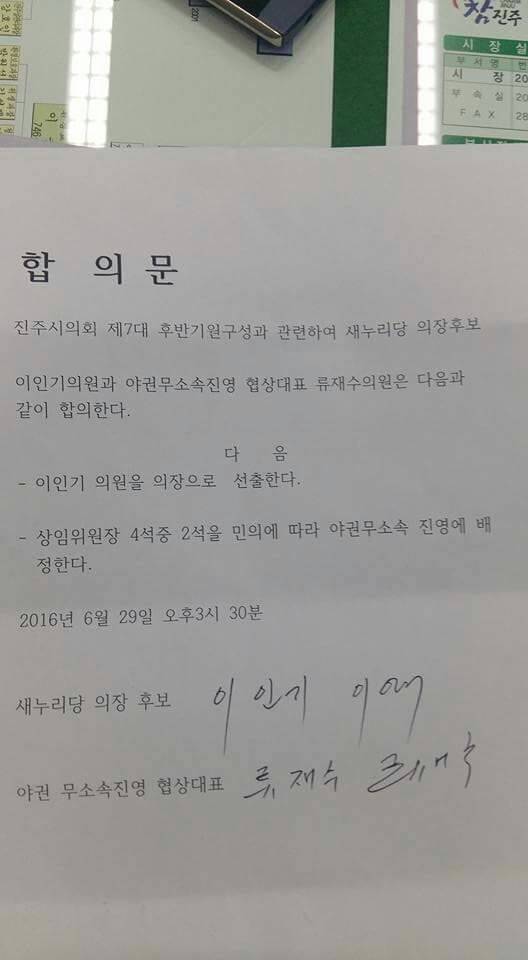 참진주
시 장 실
부서명 번
시 장 20
부 속 실 20
F A X 28
2001
이
746
합 의 문
진주시의회 제7대 후반기원구성과 관련하여 새누리당 의장후보
이인기의원과 야권무소속진영 협상대표 류재수의원은 다음과
같이 합의한다.
다 음
- 이인기 의원을 의장으로 선출한다.
- 상임위원장 4석중 2석을 민의에 따라 야권무소속 진영에 배
정한다.
2016년 6월 29일 오후3시 30분
새누리당 의장 후보 이인기
야권 무소속진영 협상대표 류재수